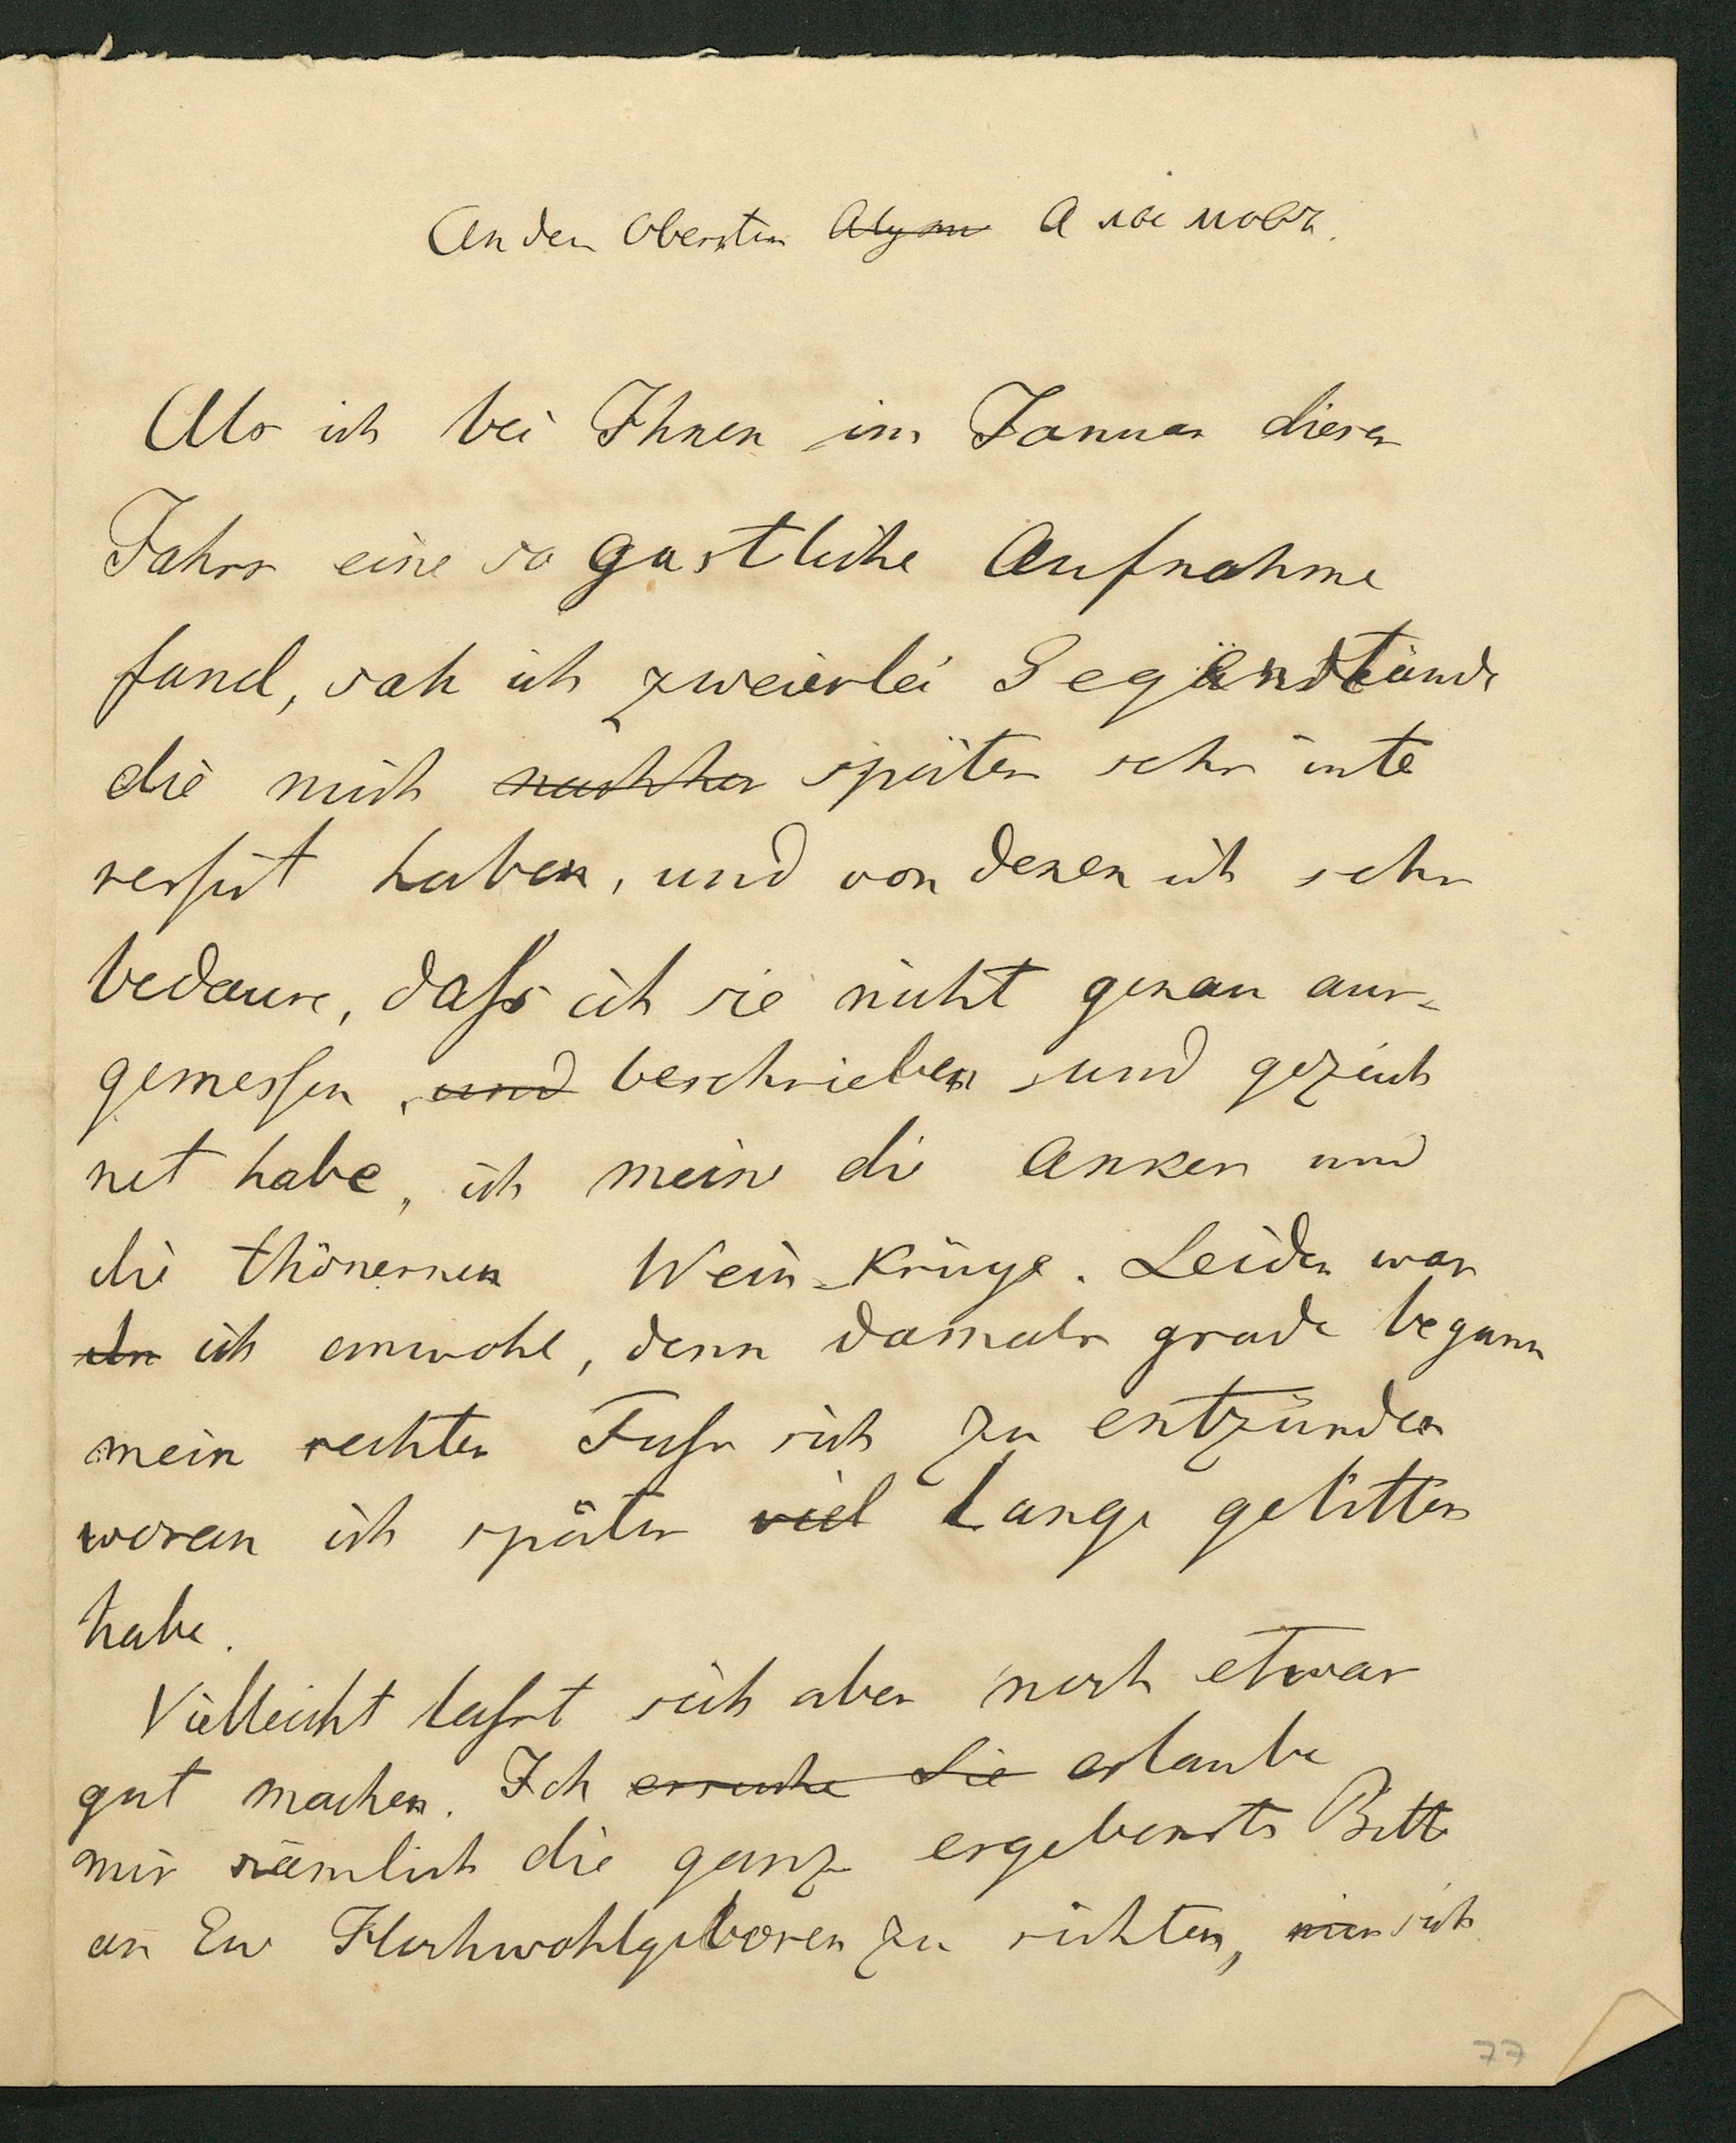 An den Obersten
Als ich bei Ihnen im Januar dieses
Jahrs eine so gastliche Aufnahme
fand, sah ich zweierlei Gegenstände
die mich nachher später sehr inte
ressirt haben, und von denen ich sehr
bedaure, dass ich sie nicht genau aus-
gemessen, und beschrieben und gezeich
net habe, ich meine die Anker und
die thönernen Wein-Krüge. Leider war
ich unwohl, denn damals grade begann
mein rechter Fuss sich zu entzünden
woran ich später viel lange gelitten
habe.
Vielleicht lasst sich aber noch etwas
gut machen. Ich ersuche Sie erlaube
mir nämlich die ganz ergebenste Bitte
an Ew Hochwohlgeboren zu richten, sich
77